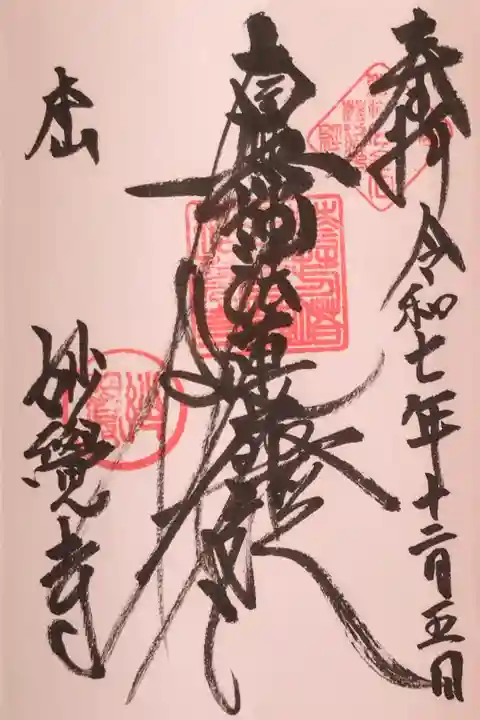 奉拝
令和七年十二月五日
南無妙法蓮華經
本山
妙覺寺